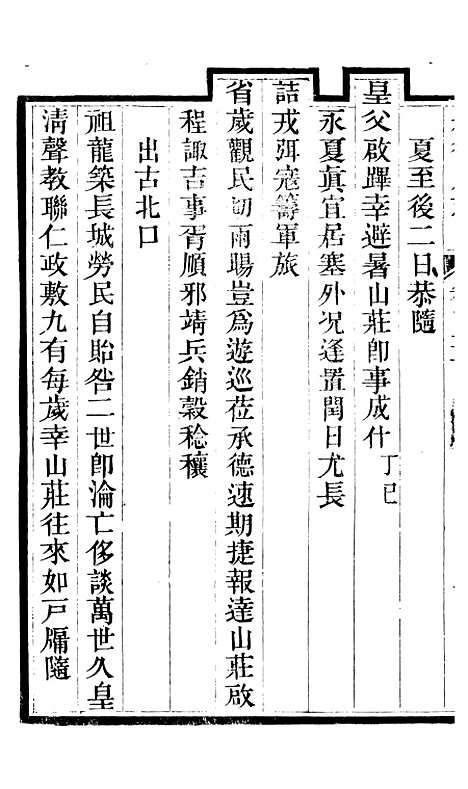 夏至後二日恭隨
皇父啟蹕幸避暑山莊卽事成什丁巳
永夏眞宜居塞外況逢置閏日尤長
詰戎弭寇籌軍旅
省歲觀民切雨暘豈爲遊巡莅承德速期捷報達山莊啟
程諏吉事胥順邪靖兵銷穀稔穰
出古北口
祖龍築長城勞民自貽咎二世卽淪亡侈談萬世久皇
淸聲教聯仁政敷九有每歲幸山莊往來如戸牖隨